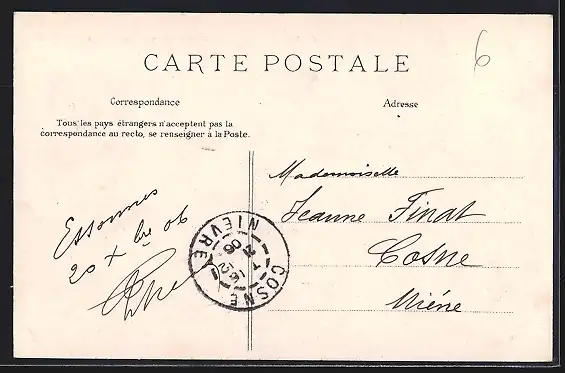 6
CARTE POSTALE
Correspondance
Adresse
Tous les pays étrangers n'acceptent pas la
correspondance au recto, se renseigner à la Poste.
Mademoiselle
Jeanne Finat
Cosne
Essonnes
20 Xbre 06
COSNE
NIEVRE